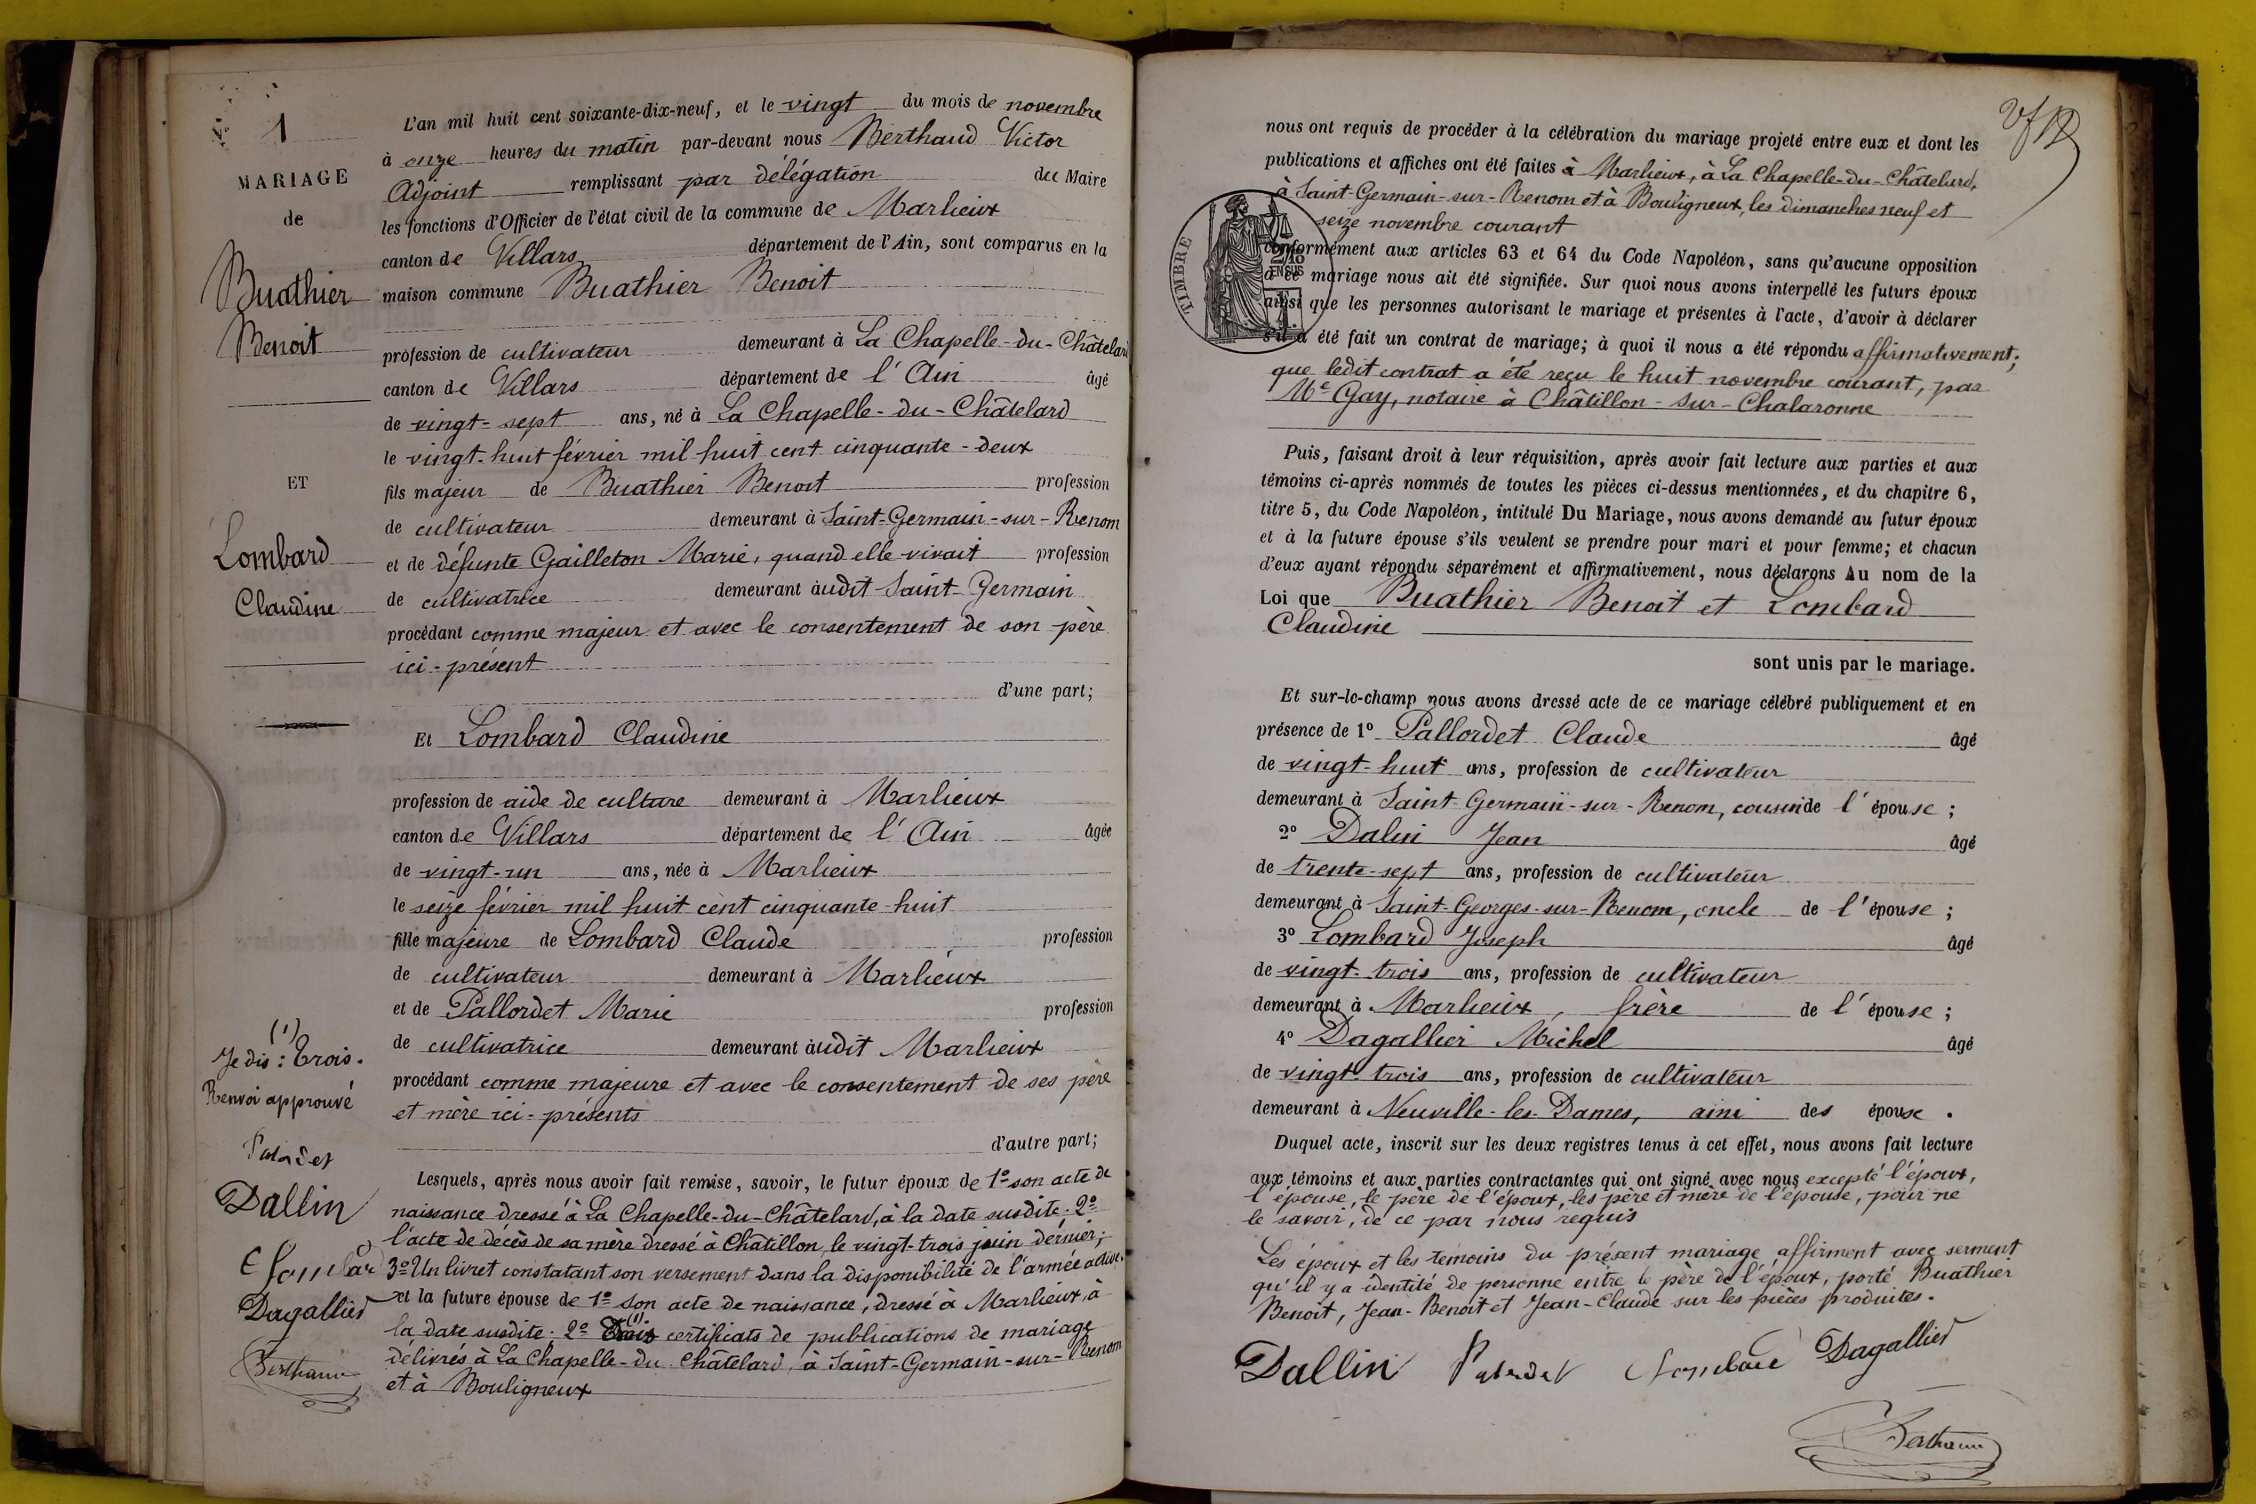 1
MARIAGE
de
Buathier
Benoit
ET
Lombard
Claudine
(1)
Je dis : Trois.
Renvoi approuvé
Dallin
Dagallier
Berthaud
L'an mil huit cent soixante-dix-neuf, et le vingt du mois de novembre
à onze heures du matin par-devant nous Berthaud Victor
Adjoint remplissant par délégation du Maire
les fonctions d'Officier de l'état civil de la commune de Marlieux
canton de Villars département de l'Ain, sont comparus en la
maison commune Buathier Benoit
profession de cultivateur demeurant à La Chapelle-du-Châtelard
canton de Villars département de l'Ain âgé
de vingt-sept ans, né à La Chapelle-du-Châtelard
le vingt-huit février mil huit cent cinquante-deux
fils majeur de Buathier Benoit profession
de cultivateur demeurant à Saint-Germain-sur-Renom
et de défunte Gailleton Marie, quand elle vivait profession
de cultivatrice demeurant àudit Saint-Germain
procédant comme majeur et avec le consentement de son père
ici-présent
d'une part;
Et Lombard Claudine
profession de aide de culture demeurant à Marlieux
canton de Villars département de l'Ain âgée
de vingt-un ans, née à Marlieux
le seize février mil huit cent cinquante-huit
fille majeure de Lombard Claude profession
de cultivateur demeurant à Marlieux
et de Pallordet Marie profession
de cultivatrice demeurant àudit Marlieux
procédant comme majeure et avec le consentement de ses père
et mère ici-présents
d'autre part;
Lesquels, après nous avoir fait remise, savoir, le futur époux de 1º son acte de
naissance dressé à La Chapelle-du-Châtelard, à la date susdite. 2º
l'acte de décès de sa mère dressé à Châtillon, le vingt-trois juin dernier;
3º Un livret constatant son versement dans la disponibilité de l'armée active.
et la future épouse de 1º son acte de naissance, dressé à Marlieux, à
la date susdite. 2º Trois (1) certificats de publications de mariage
délivrés à La Chapelle-du-Châtelard, à Saint-Germain-sur-Renom
et à Bouligneux
nous ont requis de procéder à la célébration du mariage projeté entre eux et dont les
publications et affiches ont été faites à Marlieux, à La Chapelle-du-Châtelard,
à Saint-Germain-sur-Renom et à Bouligneux, les dimanches neuf et
seize novembre courant
TIMBRE
2/10
EN SUS
conformément aux articles 63 et 64 du Code Napoléon, sans qu'aucune opposition
à ce mariage nous ait été signifiée. Sur quoi nous avons interpellé les futurs époux
ainsi que les personnes autorisant le mariage et présentes à l'acte, d'avoir à déclarer
s'il a été fait un contrat de mariage; à quoi il nous a été répondu affirmativement;
que ledit contrat a été reçu le huit novembre courant, par
Me Gay, notaire à Châtillon-sur-Chalaronne
Puis, faisant droit à leur réquisition, après avoir fait lecture aux parties et aux
témoins ci-après nommés de toutes les pièces ci-dessus mentionnées, et du chapitre 6,
titre 5, du Code Napoléon, intitulé Du Mariage, nous avons demandé au futur époux
et à la future épouse s'ils veulent se prendre pour mari et pour femme; et chacun
d'eux ayant répondu séparément et affirmativement, nous déclarons Au nom de la
Loi que Buathier Benoit et Lombard
Claudine
sont unis par le mariage.
Et sur-le-champ nous avons dressé acte de ce mariage célébré publiquement et en
présence de 1º Pallordet Claude âgé
de vingt-huit ans, profession de cultivateur
demeurant à Saint-Germain-sur-Renom, cousin de l'épouse ;
2º Dalin Jean âgé
de trente-sept ans, profession de cultivateur
demeurant à Saint-Georges-sur-Renom, oncle de l'épouse ;
3º Lombard Joseph âgé
de vingt-trois ans, profession de cultivateur
demeurant à Marlieux, frère de l'épouse ;
4º Dagallier Michel âgé
de vingt-trois ans, profession de cultivateur
demeurant à Neuville-les-Dames, ami des épouse .
Duquel acte, inscrit sur les deux registres tenus à cet effet, nous avons fait lecture
aux témoins et aux parties contractantes qui ont signé avec nous excepté l'époux,
l'épouse, le père de l'époux, les père et mère de l'épouse, pour ne
le savoir, de ce par nous requis
Les époux et les témoins du présent mariage affirment avec serment
qu'il y a identité de personne entre le père de l'époux, porté Buathier
Benoit, Jean-Benoit et Jean-Claude sur les pièces produites.
Dallin Dagallier
Berthaud